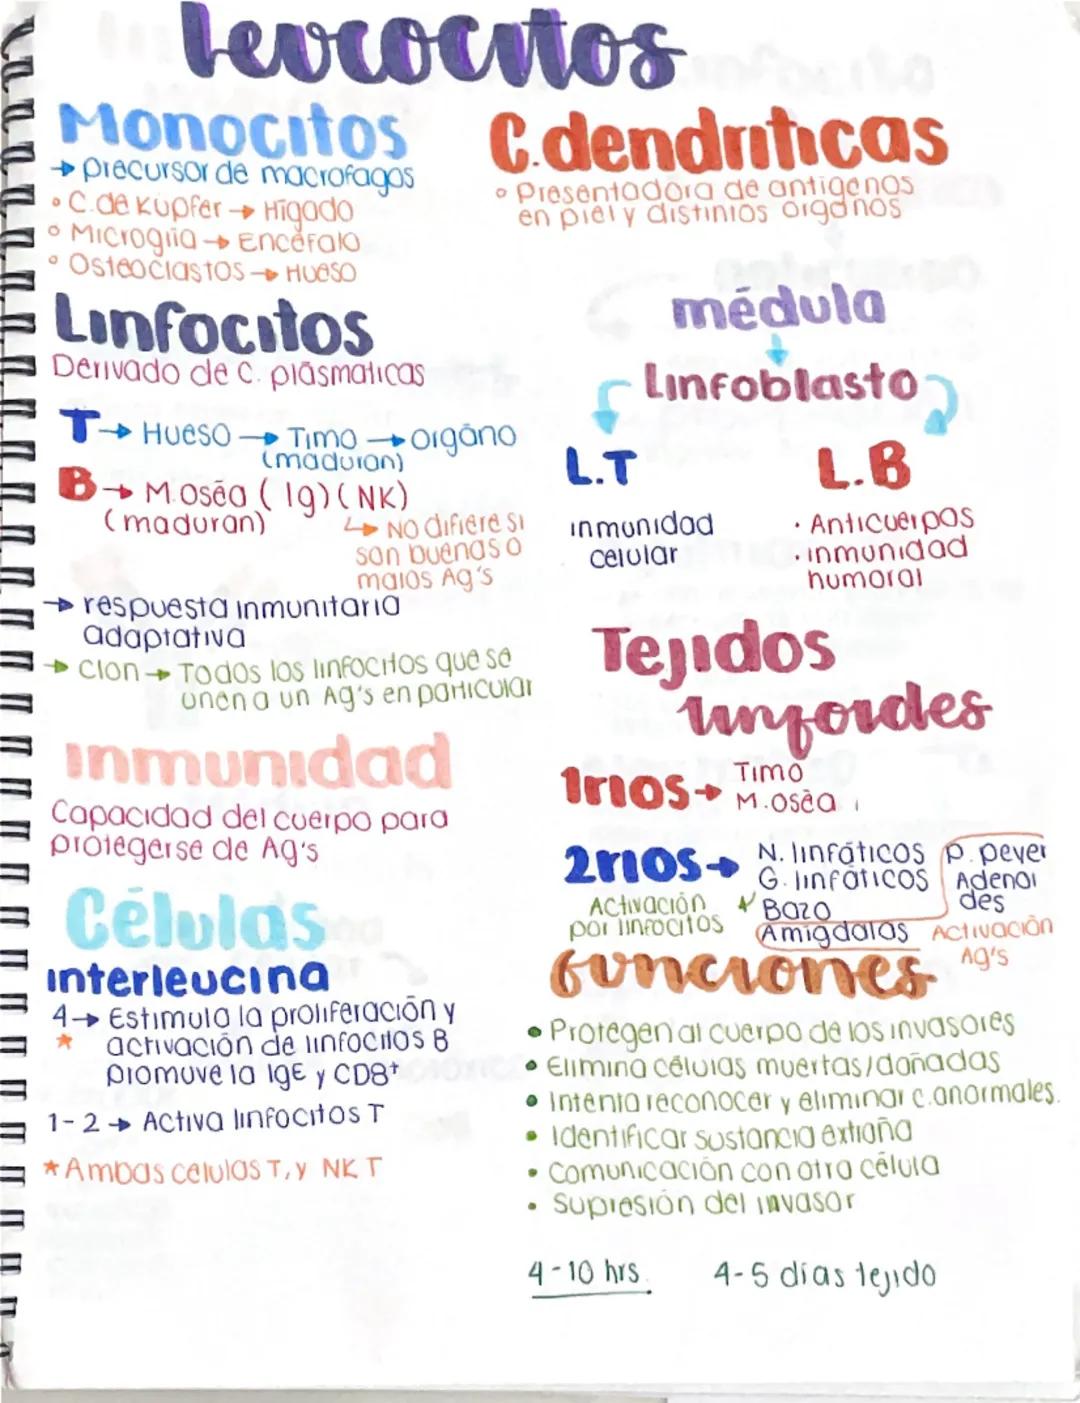 Leucocitos
Monocitos
→ precursor de macrofagos
° C. de Kupfer → Higado
° Microglia → Encéfalo
° Osteoclastos → Hueso
C. dendriticas
° Presentadora de antigenos
en piel y distintos organos
Linfocitos
Derivado de C. plásmaticas
T → Hueso → Timo → orgáno
(maduran)
B → M. oséa ( Ig ) ( NK )
(maduran)
↳ No difiere si
son buenas o
malos Ag's
→ respuesta inmunitaria
adaptativa
→ Clon → Todos los linfocitos que se
unen a un Ag's en particular
médula
Linfoblasto
L.T
inmunidad
celular
L.B
· Anticuerpos
· inmunidad
humoral
inmunidad
Capacidad del cuerpo para
protegerse de Ag's
Tejidos
linfoides
1rios → Timo
M. oséa
2rios → N. linfáticos
G. linfáticos
Bazo
Amigdalas
P. peyer
Adenoi
des
Activación
por linfocitos
Activación
Ag's
Células
interleucina
4 → Estimula la proliferación y
* activación de linfocitos B
promueve la IgE y CD8+
1-2 → Activa linfocitos T
* Ambas celulas T, y NK T
funciones
• Protegen al cuerpo de los invasores
• Elimina células muertas/dañadas
• Intenta reconocer y eliminar c. anormales.
• Identificar sustancia extraña
• Comunicación con otra célula
• Supresión del invasor
4-10 hrs.
4-5 días tejido